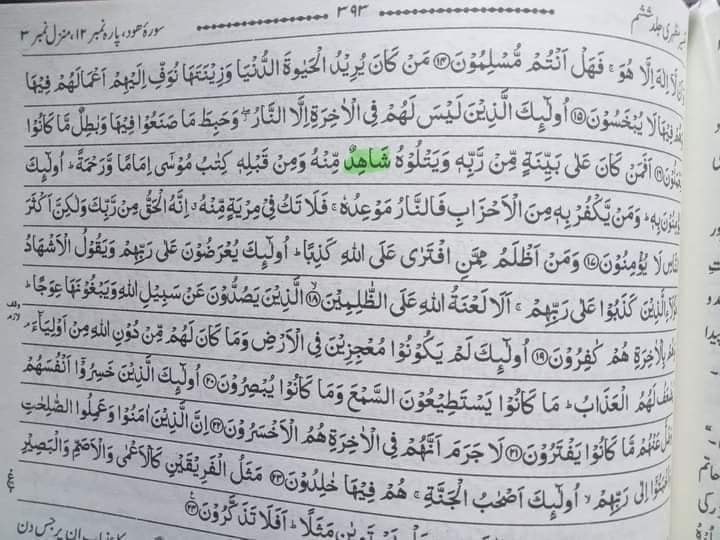 سورۂ ھود، پارہ نمبر ۱۲، منزل نمبر ۳
۳۹۳
مظہری جلد ششم
لَّآ اِلٰهَ اِلَّا هُوَ ۚ فَهَلْ اَنْتُمْ مُّسْلِمُوْنَ ۝۱۴ مَنْ كَانَ يُرِيْدُ الْحَيٰوةَ الدُّنْيَا وَزِيْنَتَهَا نُوَفِّ اِلَيْهِمْ اَعْمَالَهُمْ فِيْهَا
فِيْهَا لَا يُبْخَسُوْنَ ۝۱۵ اُولٰٓئِكَ الَّذِيْنَ لَيْسَ لَهُمْ فِي الْاٰخِرَةِ اِلَّا النَّارُ ۖ وَحَبِطَ مَا صَنَعُوْا فِيْهَا وَبٰطِلٌ مَّا كَانُوْا
اَفَمَنْ كَانَ عَلٰى بَيِّنَةٍ مِّنْ رَّبِّهٖ وَيَتْلُوْهُ شَاهِدٌ مِّنْهُ وَمِنْ قَبْلِهٖ كِتٰبُ مُوْسٰٓى اِمَامًا وَّرَحْمَةً ؕ اُولٰٓئِكَ
بِهٖ ؕ وَمَنْ يَّكْفُرْ بِهٖ مِنَ الْاَحْزَابِ فَالنَّارُ مَوْعِدُهٗ ۚ فَلَا تَكُ فِيْ مِرْيَةٍ مِّنْهُ ۗ اِنَّهُ الْحَقُّ مِنْ رَّبِّكَ وَلٰكِنَّ اَكْثَرَ
لَا يُؤْمِنُوْنَ ۝۱۷ وَمَنْ اَظْلَمُ مِمَّنِ افْتَرٰى عَلَى اللّٰهِ كَذِبًا ؕ اُولٰٓئِكَ يُعْرَضُوْنَ عَلٰى رَبِّهِمْ وَيَقُوْلُ الْاَشْهَادُ
الَّذِيْنَ كَذَبُوْا عَلٰى رَبِّهِمْ ۚ اَلَا لَعْنَةُ اللّٰهِ عَلَى الظّٰلِمِيْنَ ۝۱۸ الَّذِيْنَ يَصُدُّوْنَ عَنْ سَبِيْلِ اللّٰهِ وَيَبْغُوْنَهَا عِوَجًا ؕ
بِالْاٰخِرَةِ هُمْ كٰفِرُوْنَ ۝۱۹ اُولٰٓئِكَ لَمْ يَكُوْنُوْا مُعْجِزِيْنَ فِي الْاَرْضِ وَمَا كَانَ لَهُمْ مِّنْ دُوْنِ اللّٰهِ مِنْ اَوْلِيَآءَ ۘ
لَهُمُ الْعَذَابُ ؕ مَا كَانُوْا يَسْتَطِيْعُوْنَ السَّمْعَ وَمَا كَانُوْا يُبْصِرُوْنَ ۝۲۰ اُولٰٓئِكَ الَّذِيْنَ خَسِرُوْٓا اَنْفُسَهُمْ
عَنْهُمْ مَّا كَانُوْا يَفْتَرُوْنَ ۝۲۱ لَا جَرَمَ اَنَّهُمْ فِي الْاٰخِرَةِ هُمُ الْاَخْسَرُوْنَ ۝۲۲ اِنَّ الَّذِيْنَ اٰمَنُوْا وَعَمِلُوا الصّٰلِحٰتِ
اِلٰى رَبِّهِمْ ۙ اُولٰٓئِكَ اَصْحٰبُ الْجَنَّةِ ۚ هُمْ فِيْهَا خٰلِدُوْنَ ۝۲۳ مَثَلُ الْفَرِيْقَيْنِ كَالْاَعْمٰى وَالْاَصَمِّ وَالْبَصِيْرِ
يَسْتَوِيٰنِ مَثَلًا ؕ اَفَلَا تَذَكَّرُوْنَ ۝۲۴